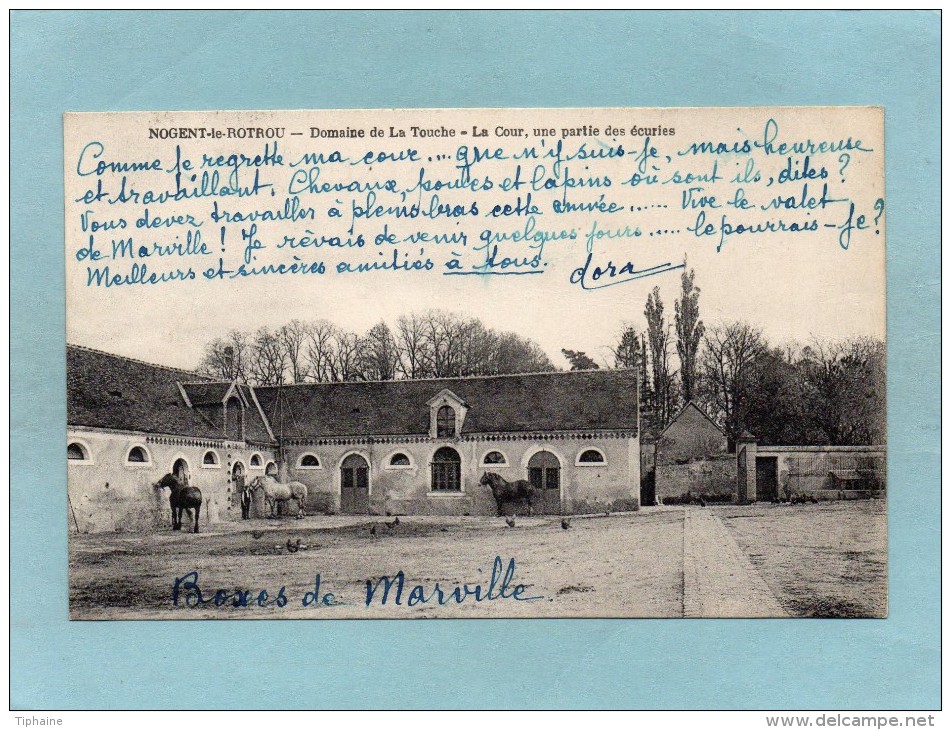 NOGENT-le-ROTROU — Domaine de La Touche - La Cour, une partie des écuries
Comme je regrette ma cour ... que n'y suis-je, mais heureuse
et travaillant. Chevaux, poules et lapins où sont ils, dites ?
Vous devez travailler à pleins bras cette année ...... Vive le valet
de Marville ! Je rêvais de venir quelques jours ..... le pourrais-je ?
Meilleurs et sincères amitiés à tous.
dora
Boxes de Marville
Tiphaine
www.delcampe.net